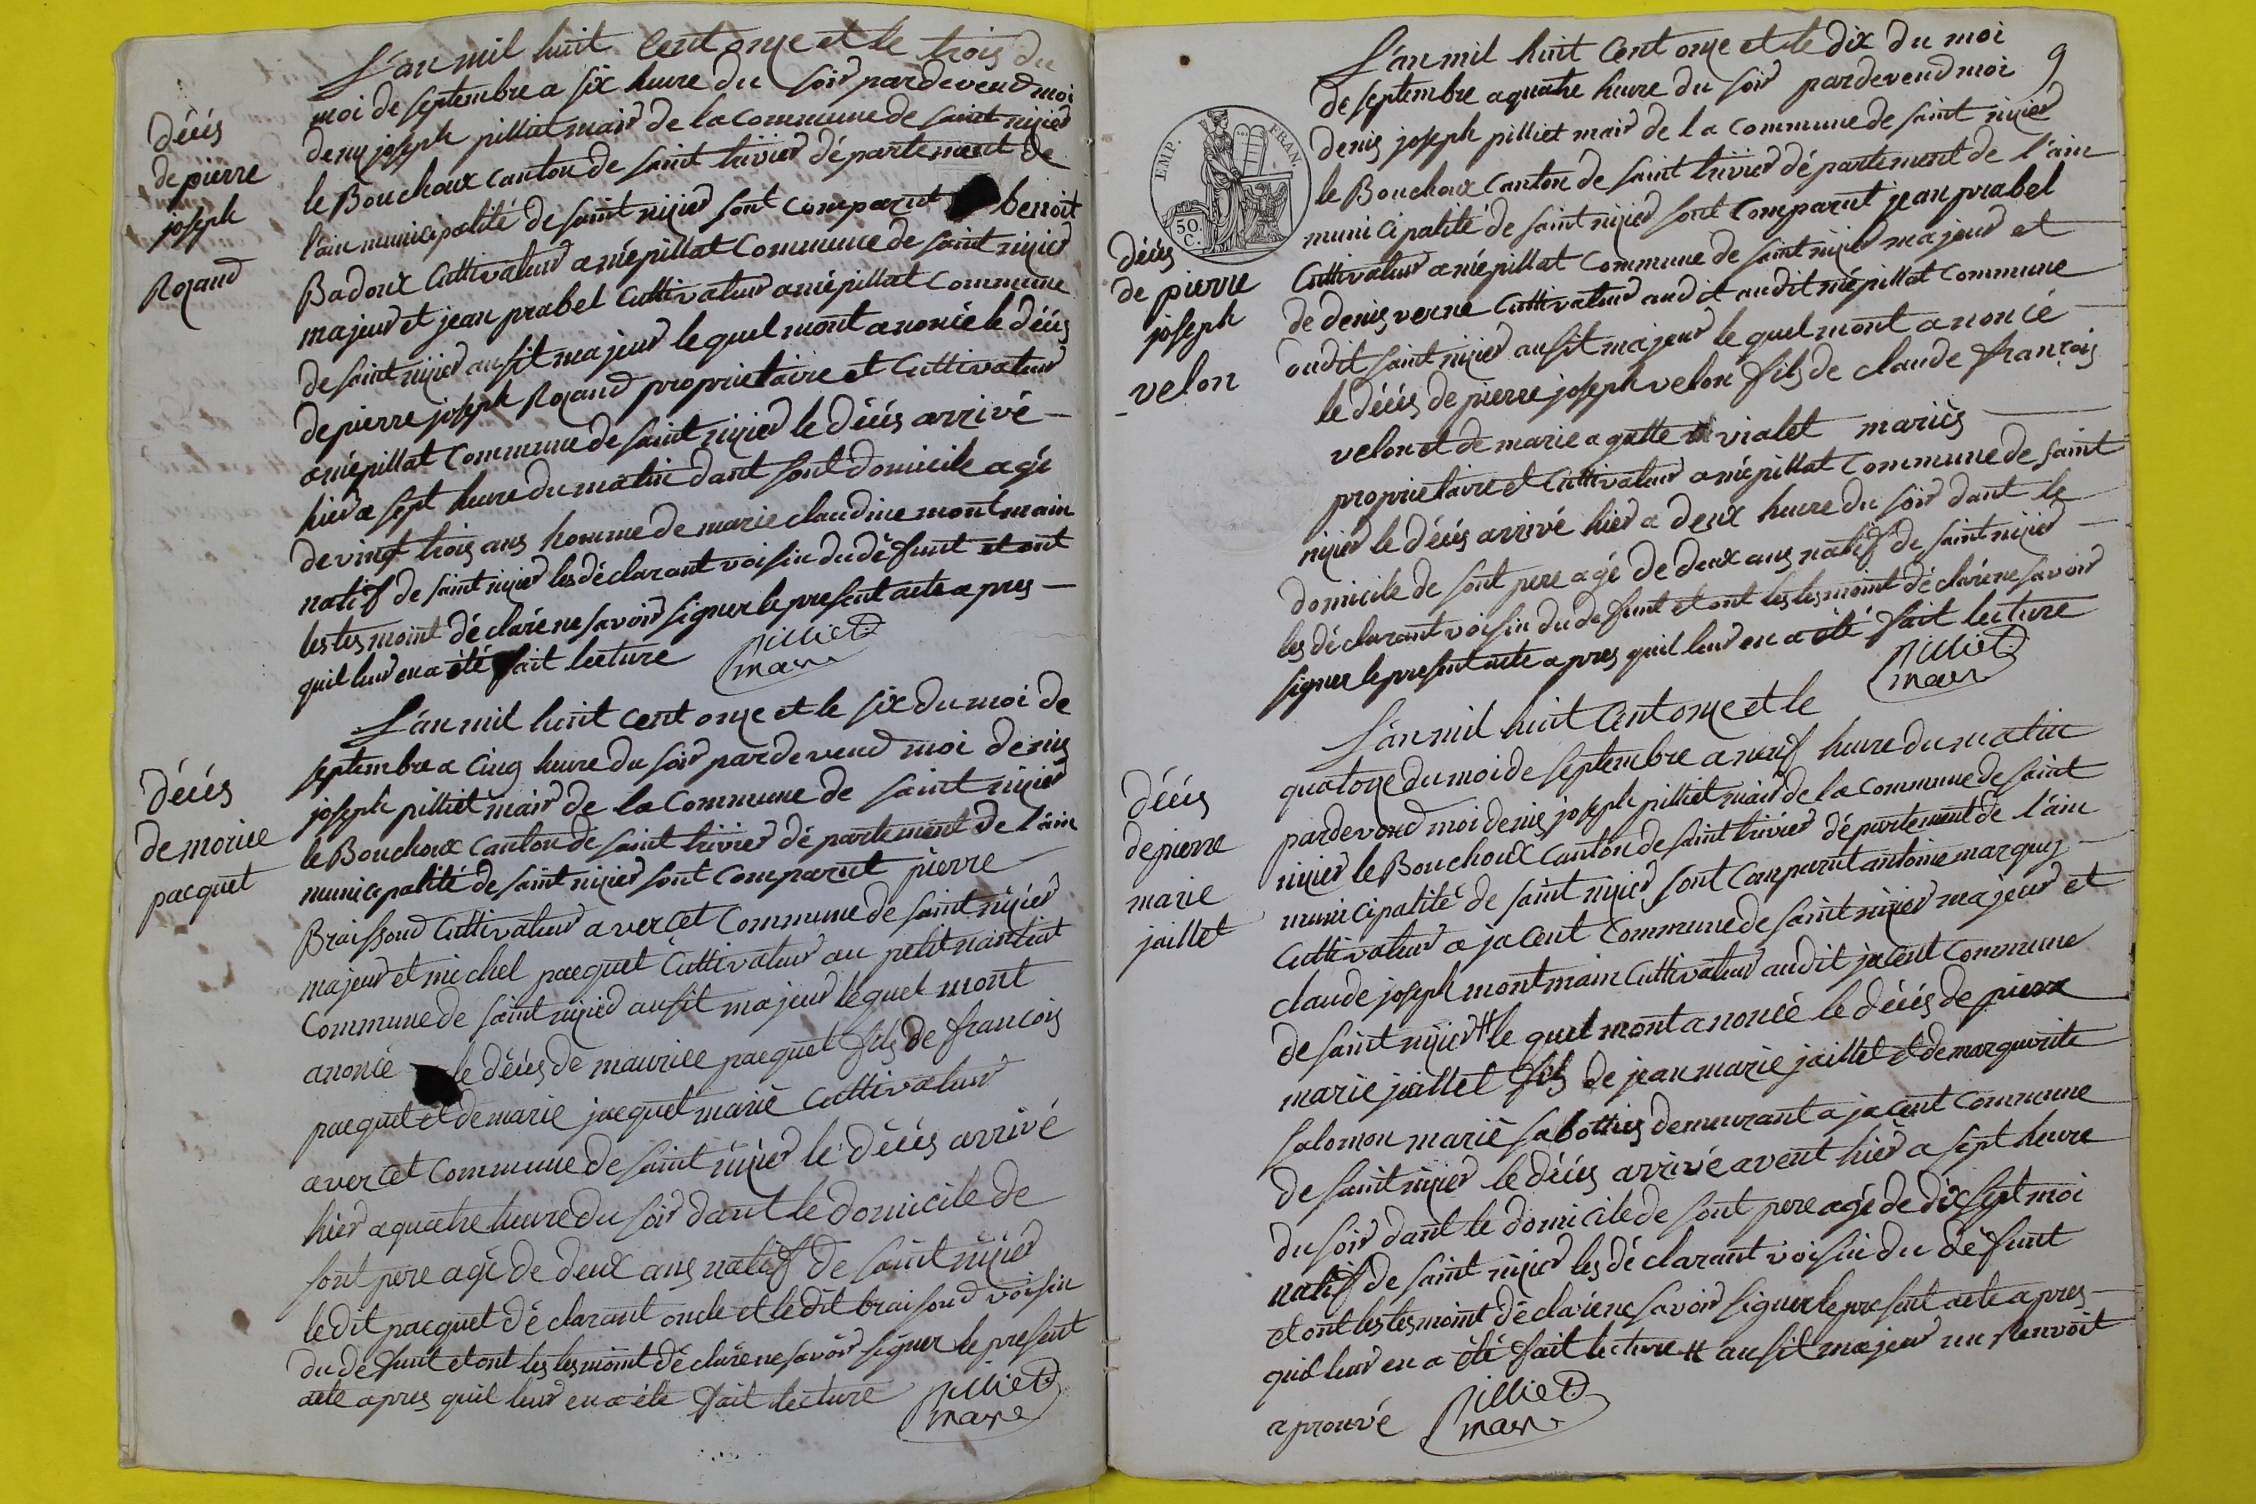 L'an mil huit Cent onze et le trois du
moi de septembre a six heure du soir pardevend moi
deny joseph pilliat mair de la Commune de saint nizier
le Bouchoux canton de saint trivier département de
l'ain municipalité de saint nizier sont comparut benoit
Badoux Cultivateur a mépillat Commune de saint nizier
majeur et jean prabel Cultivateur a mépillat Commune
de saint nizier ausit majeur le quel mont anoncé le décés
de pierre joseph Rozand proprietaire et Cultivateur
a mépillat Commune de saint nizier le décés arrivé
hier a sept heure du matin dant sont domicile agé
de vingt trois ans homme de marie claudine montmain
natif de saint nizier les déclarant voisin du défunt et ont
les tesmoint déclaré ne savoir signer le present acte apres
quil leur en a été fait lecture
pilliet
mair
décés
de pierre
joseph
Rozand
L'an mil huit cent onze et le six du moi de
septembre a cinq heure du soir pardevend moi denis
joseph pilliet mair de la Commune de saint nizier
le Bouchoux canton de saint trivier département de l'ain
municipalité de saint nizier sont Comparut pierre
Braissoud Cultivateur a vercet Commune de saint nizier
majeur et michel pacquet Cultivateur au petit nantiat
Commune de saint nizier ausit majeur le quel mont
anoncé le décés de maurice pacquet fils de francois
pacquet et de marie jacquet marié Cultivateur
a vercet Commune de saint nizier le décés arrivé
hier a quatre heure du soir dant le domicile de
sont pere agé de deux ans natif de saint nizier
le dit pacquet déclarant oncle et le dit braisoud voisin
du défunt et ont les tesmoint déclaré ne savoir signer le present
acte apres quil leur en a été fait lecture
pilliet
maire
décés
de morice
pacquet
9
L'an mil huit Cent onze et le dix du moi
de septembre a quatre heure du soir pardevend moi
denis joseph pilliet mair de la Commune de saint nizier
le Bouchoux Canton de saint trivier département de l'ain
municipalité de saint nizier sont Comparut jean prabel
Cultivateur a mépillat Commune de saint nizier majeur et
de denis verne Cultivateur audit audit mépillat Commune
audit saint nizier ausit majeur le quel mont anoncé
le décés de pierre joseph velon fils de claude françois
velon et de marie agatte vialet mariés
proprietaire et Cultivateur a mépillat Commune de saint
nizier le décés arrivé hier a deux heure du soir dant le
domicile de sont pere agé de deux ans natif de saint nizier
les déclarant voisin du defunt et ont les tesmoint déclaré ne savoir
signer le present acte apres quil leur en a été fait lecture
pilliet
mair
EMP. FRAN.
50.
C.
décés
de pierre
joseph
velon
L'an mil huit Cent onze et le
quatorze du moi de septembre a neuf heure du matin
pardevend moi denis joseph pilliet mair de la Commune de saint
nizier le Bouchoux Canton de saint trivier département de l'ain
municipalité de saint nizier sont Comparut antoine marquiz
Cultivateur a jacent Commune de saint nizier majeur et
claude joseph montmain Cultivateur audit jacent Commune
de saint nizier # le quel mont anoncé le décés de pierre
marie jaillet fils de jean marie jaillet et de marguerite
salomon marié sabottier demeurant a jacent Commune
de saint nizier le décés arrivé avent hier a sept heure
du soir dant le domicile de sont pere agé de dix sept moi
natif de saint nizier les déclarant voisin du défunt
et ont les tesmoint déclaré ne savoir signer le present acte apres
quil leur en a été fait lecture # ausit majeur un Renvoit
aprouvé
pilliet
mair
décés
de pierre
marie
jaillet